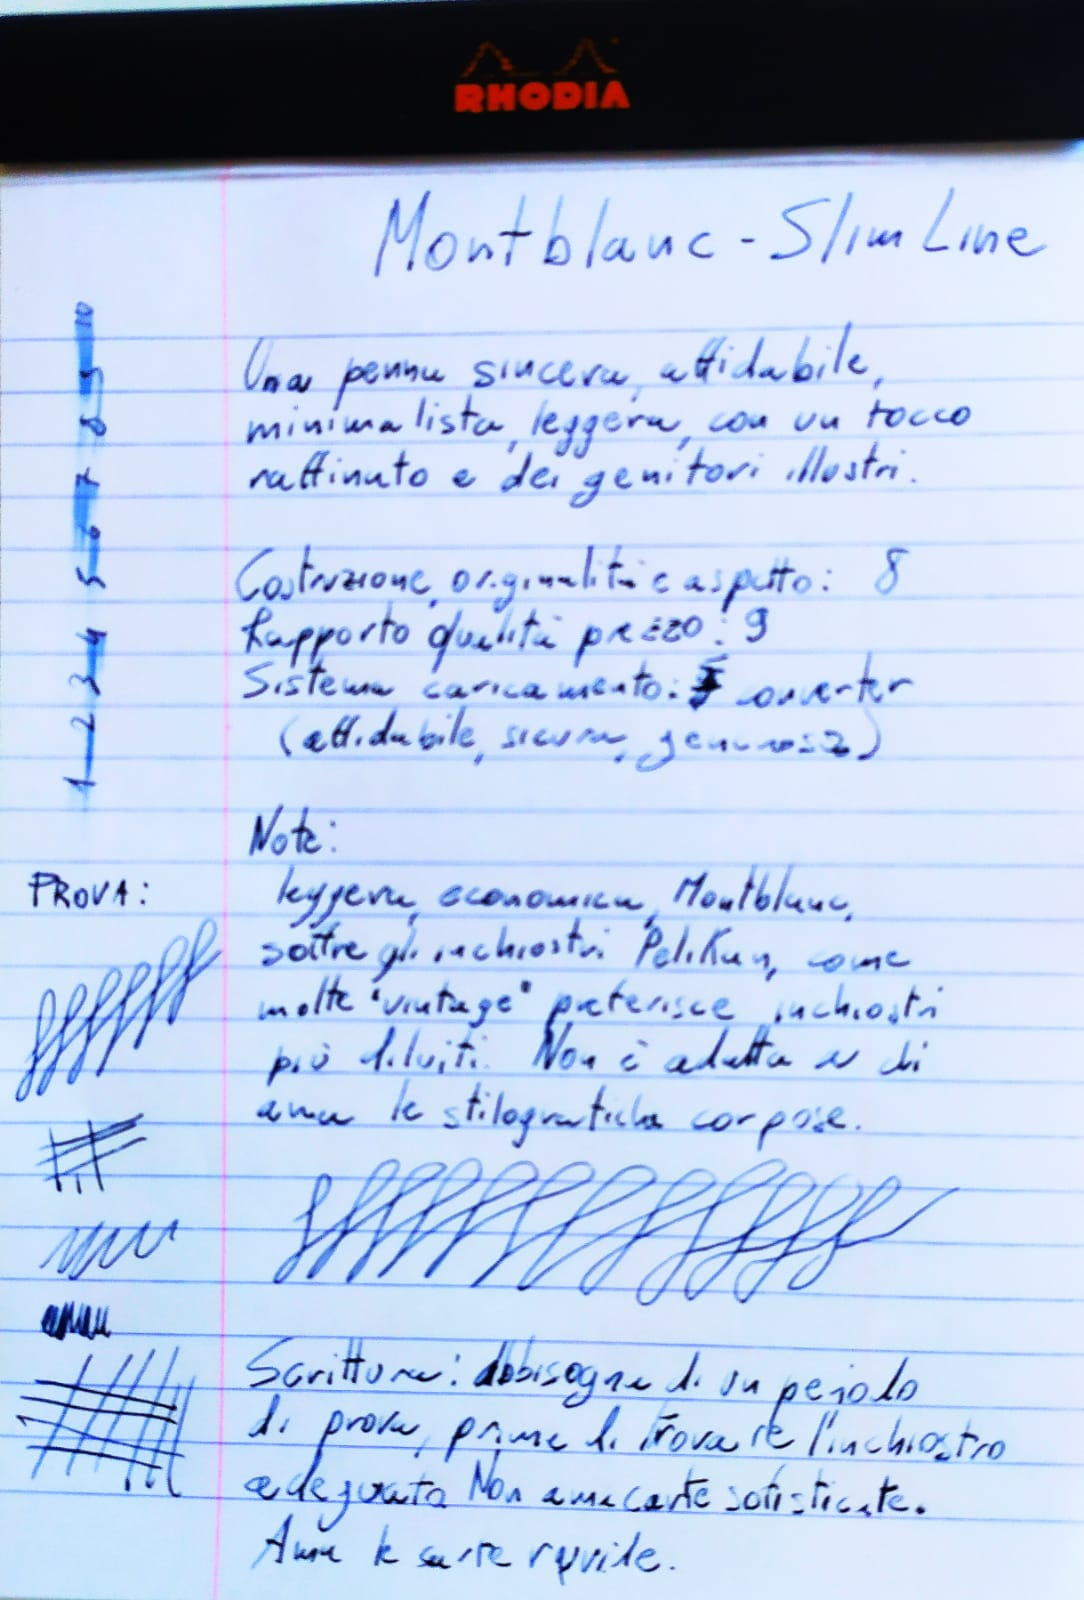 RHODIA
Montblanc - Slim Line
Una penna sincera, affidabile,
minimalista, leggera, con un tocco
raffinato e dei genitori illustri.
Costruzione, originalità e aspetto: 8
Rapporto qualità prezzo: 9
Sistema caricamento: converter
(affidabile, sicura, generosa)
1 2 3 4 5 6 7 8 9 10
Note:
leggera, economica, Montblanc,
soffre gli inchiostri Pelikan, come
molte "vintage" preferisce inchiostri
più diluiti. Non è adatta a chi
ama le stilografiche corpose.
PROVA:
Scrittura: abbisogna di un
di prova, prima di trovare l'inchiostro
adeguato Non ama carte sofisticate.
Ama le carte